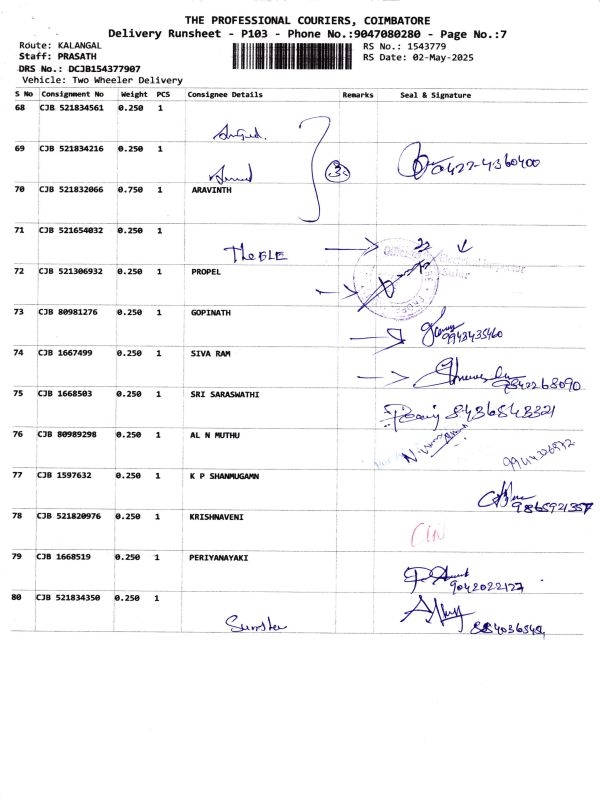 THE PROFESSIONAL COURIERS, COIMBATORE
Delivery Runsheet - P103 - Phone No.:9047080280 - Page No.:7
Route: KALANGAL RS No.: 1543779
Staff: PRASATH RS Date: 02-May-2025
DRS No.: DCJB154377907
Vehicle: Two Wheeler Delivery
S No Consignment No Weight PCS Consignee Details Remarks Seal & Signature
68 CJB 521834561 0.250 1
69 CJB 521834216 0.250 1
3 0422-4360400
70 CJB 521832066 0.750 1 ARAVINTH
71 CJB 521654032 0.250 1
72 CJB 521306932 0.250 1 PROPEL
73 CJB 80981276 0.250 1 GOPINATH
9943435460
74 CJB 1667499 0.250 1 SIVA RAM
9842268090
75 CJB 1668503 0.250 1 SRI SARASWATHI
8436843321
76 CJB 80989298 0.250 1 AL N MUTHU
77 CJB 1597632 0.250 1 K P SHANMUGAMN
9865921357
78 CJB 521820976 0.250 1 KRISHNAVENI
79 CJB 1668519 0.250 1 PERIYANAYAKI
9042022127
80 CJB 521834350 0.250 1